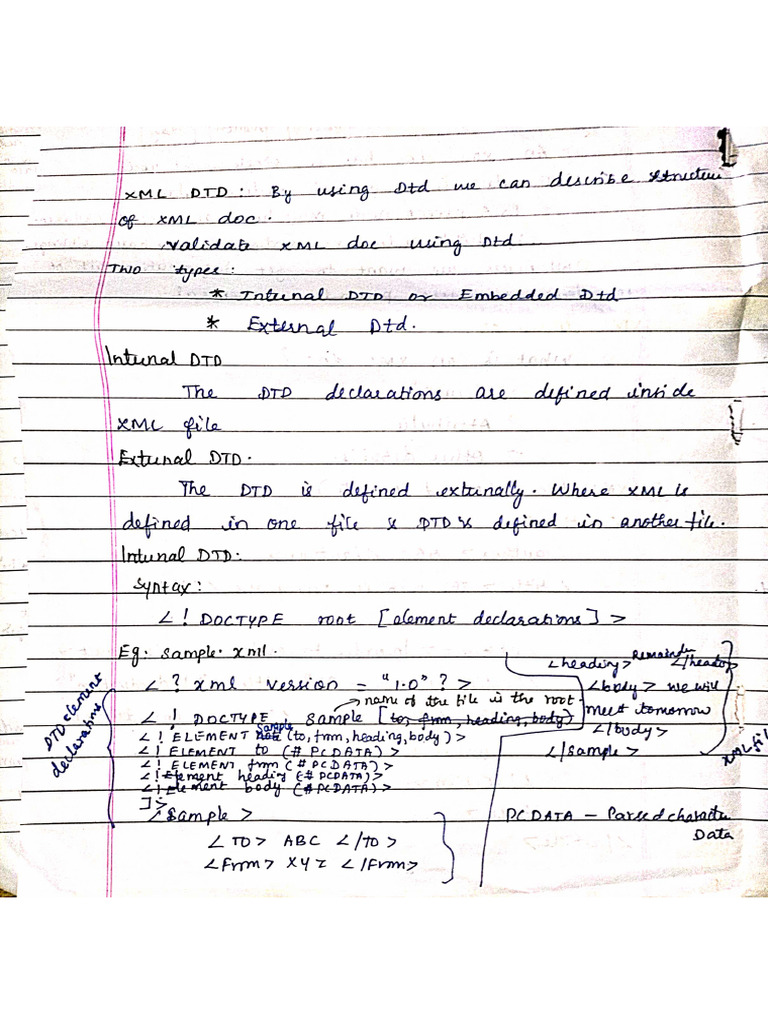 XML DTD: By using Dtd we can describe structure
of XML doc.
validate XML doc using Dtd
Two types:
* Internal DTD or Embedded Dtd
* External Dtd.
Internal DTD
The DTD declarations are defined inside
XML file
External DTD.
The DTD is defined externally. Where XML is
defined in one file & DTD is defined in another file.
Internal DTD:
Syntax:
<! DOCTYPE root [element declarations] >
Eg: sample.xml.
DTD element
declarations
<? xml version = "1.0" ?>
→ name of the file is the root.
<! DOCTYPE sample [to, from, heading, body)
Sample
<! ELEMENT note (to, from, heading, body)>
<! ELEMENT to (# PCDATA)>
<! ELEMENT from (# PCDATA)>
<! Element heading (# PCDATA)>
<! Element body (#PCDATA)>
]>
<Sample>
<TO> ABC </TO>
<From> XYZ </From>
<heading> Remainder </header>
<body> we will
meet tomorrow
</body>
</Sample>
XML file
PCDATA - Parsed character
Data